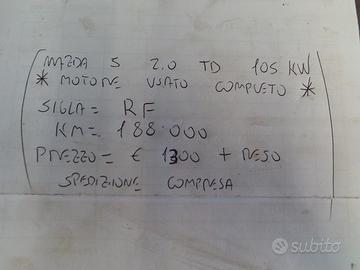 MAZDA 5 2.0 TD 105 KW
* MOTORE USATO COMPLETO *
SIGLA = RF
KM = 188.000
PREZZO = € 1300 + RESO
SPEDIZIONE COMPRESA
subito